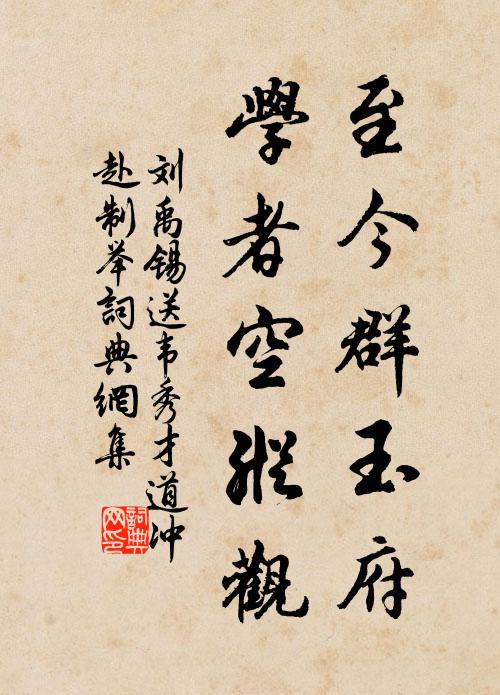 至今群玉府
學者空縱觀
刘禹锡送韦秀才道冲
赴制举詞典網集
詞典网印